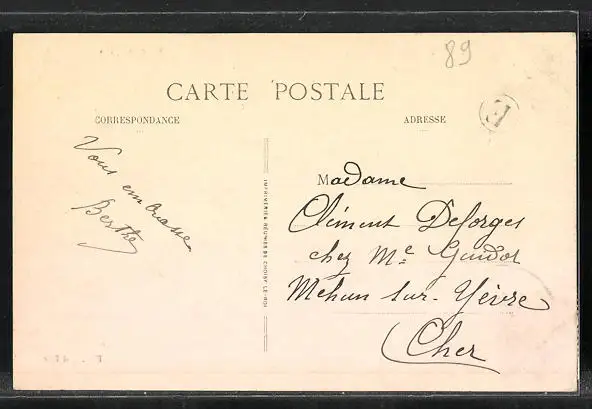 89
CARTE POSTALE
CORRESPONDANCE
ADRESSE
E
Vous embrasse
Berthe
Madame
Clément Deforges
chez Me Guidot
Mehun sur-Yèvre
Cher
IMPRIMERIES RÉUNIES DE CHOISY-LE-ROI